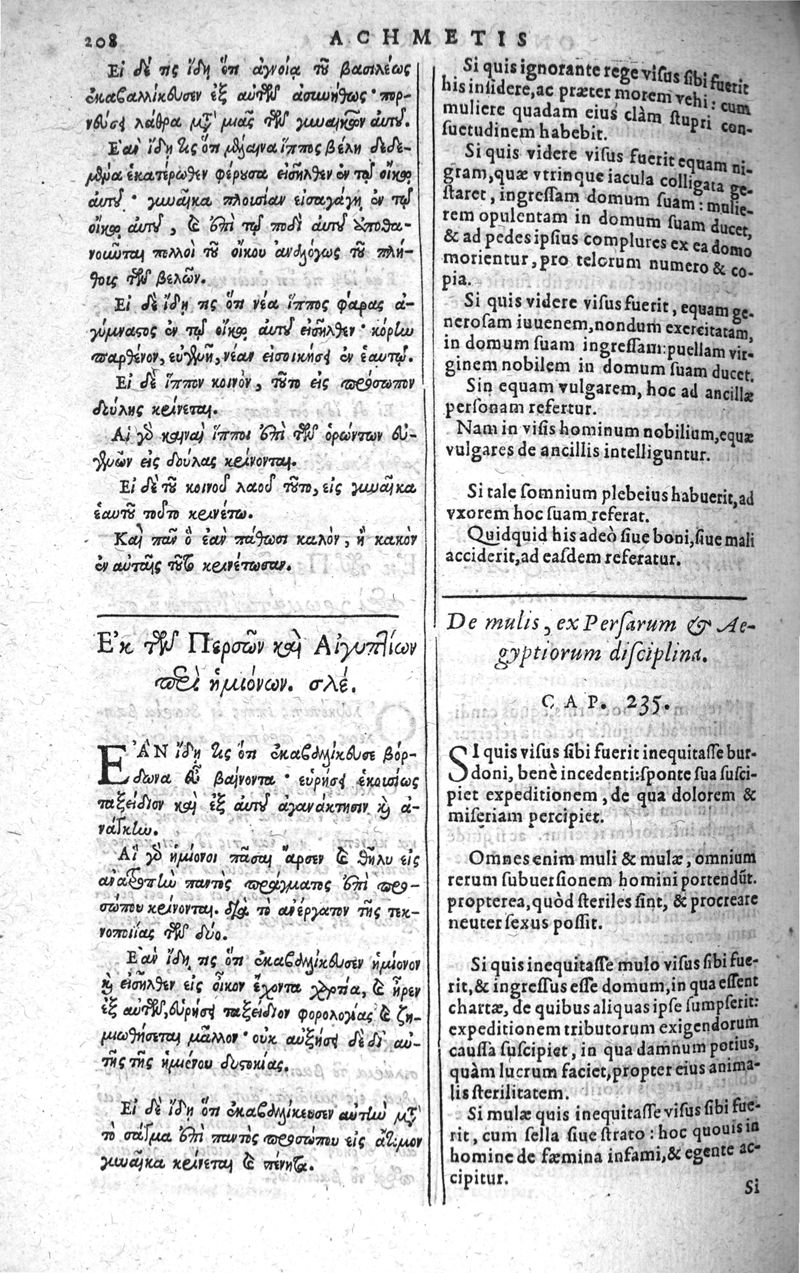 208 ACHMETIS
Εἰ δέ τις ἴδῃ ὅτι ἀγνοίᾳ τοῦ βασιλέως
ἐκαβαλλίκευσεν ἐξ αὐτῶν ἀσυνήθως· πορ-
νεύσει λάθρα μετὰ μιᾶς τῶν γυναικῶν αὐτοῦ.
Ἐὰν ἴδῃ τις ὅτι μέλαινα ἵππος βέλη δεδε-
μένα ἑκατέρωθεν φέρουσα εἰσῆλθεν ἐν τῷ οἴκῳ
αὐτοῦ· γυναῖκα πλουσίαν εἰσαγάγῃ ἐν τῷ
οἴκῳ αὐτοῦ, καὶ ἐπὶ τῷ ποδὶ αὐτοῦ ἀποθα-
νοῦνται πολλοὶ τοῦ οἴκου ἀναλόγως τοῦ πλή-
θοις τῶν βελῶν.
Εἰ δὲ ἴδῃ τις ὅτι νέα ἵππος φάρας ἀ-
γύμναστος ἐν τῷ οἴκῳ αὐτοῦ εἰσῆλθεν· κόρην
παρθένον, εὐγενῆ, νέαν εἰσοικήσει ἐν ἑαυτῷ.
Εἰ δὲ ἵππον κοινὸν, τοῦτο εἰς πρόσωπον
δούλης κρίνεται.
Αἱ γὰρ κοιναὶ ἵπποι ἐπὶ τῶν ὁρώντων εὐ-
γενῶν εἰς δούλας κρίνονται.
Εἰ δὲ τοῦ κοινοῦ λαοῦ τοῦτο, εἰς γυναῖκα
ἑαυτοῦ τοῦτο κρινέτω.
Καὶ πᾶν ὃ ἐὰν πάθωσι καλὸν, ἢ κακὸν
ἐν αὐταῖς τοῦτο κρινέτωσαν.
Ἐκ τῶν Περσῶν καὶ Αἰγυπτίων
περὶ ἡμιόνων. σλέ.
ἘᾺΝ ἴδῃ τις ὅτι ἐκαβαλλίκευσε βόρ-
δωνα εὖ βαίνοντα· εὑρήσει ἑκουσίως
ταξείδιον καὶ ἐξ αὐτοῦ ἀγανάκτησιν καὶ ἀ-
νάγκην.
Αἱ γὰρ ἡμίονοι πᾶσαι ἄρσεν καὶ θῆλυ εἰς
ἀνατροπὴν παντὸς πράγματος ἐπὶ προ-
σώπου κρίνονται. διὰ τὸ ἀνέργατον τῆς τεκ-
νοποιΐας τῶν δύο.
Ἐὰν ἴδῃ τις ὅτι ἐκαβαλλίκευσεν ἡμίονον
καὶ εἰσῆλθεν εἰς οἶκον ἔχοντα χαρτία, καὶ ἦρεν
ἐξ αὐτῶν, εὑρήσει ταξείδιον φορολογίας καὶ ζη-
μιωθήσεται μᾶλλον· οὐκ αὐξήσει δὲ δι' αὐ-
τῆς τῆς ἡμιόνου δυστοκίας.
Εἰ δὲ ἴδῃ ὅτι ἐκαβαλλίκευσεν αὐτὴν μετὰ
τὸ σάγμα ἐπὶ παντὸς προσώπου εἰς ἄτιμον
γυναῖκα κρίνεται καὶ πένητα.
Si quis ignorante rege visus sibi fuerit
his insidere, ac præter morem vehi: cum
muliere quadam eius clàm stupri con-
suetudinem habebit.
Si quis videre visus fuerit equam ni-
gram, quæ vtrinque iacula colligata ge-
staret, ingressam domum suam: mulie-
rem opulentam in domum suam ducet,
& ad pedes ipsius complures ex ea domo
morientur, pro telorum numero & co-
pia.
Si quis videre visus fuerit, equam ge-
nerosam iuuenem, nondum exercitatam,
in domum suam ingressam: puellam vir-
ginem nobilem in domum suam ducet.
Sin equam vulgarem, hoc ad ancillæ
personam refertur.
Nam in visis hominum nobilium, equæ
vulgares de ancillis intelliguntur.
Si tale somnium plebeius habuerit, ad
vxorem hoc suam referat.
Quidquid his adeò siue boni, siue mali
acciderit, ad easdem referatur.
De mulis, ex Persarum & Ae-
gyptiorum disciplina.
CAP. 235.
SI quis visus sibi fuerit inequitasse bur-
doni, benè incedenti: sponte sua susci-
piet expeditionem, de qua dolorem &
miseriam percipiet.
Omnes enim muli & mulæ, omnium
rerum subuersionem homini portendũt.
propterea, quòd steriles sint, & procreare
neuter sexus possit.
Si quis inequitasse mulo visus sibi fue-
rit, & ingressus esse domum, in qua essent
chartæ, de quibus aliquas ipse sumpserit:
expeditionem tributorum exigendorum
caussa suscipiet, in qua damnum potius,
quàm lucrum faciet, propter eius anima-
lis sterilitatem.
Si mulæ quis inequitasse visus sibi fue-
rit, cum sella siue strato: hoc quouis in
homine de fæmina infami, & egente ac-
cipitur.
Si